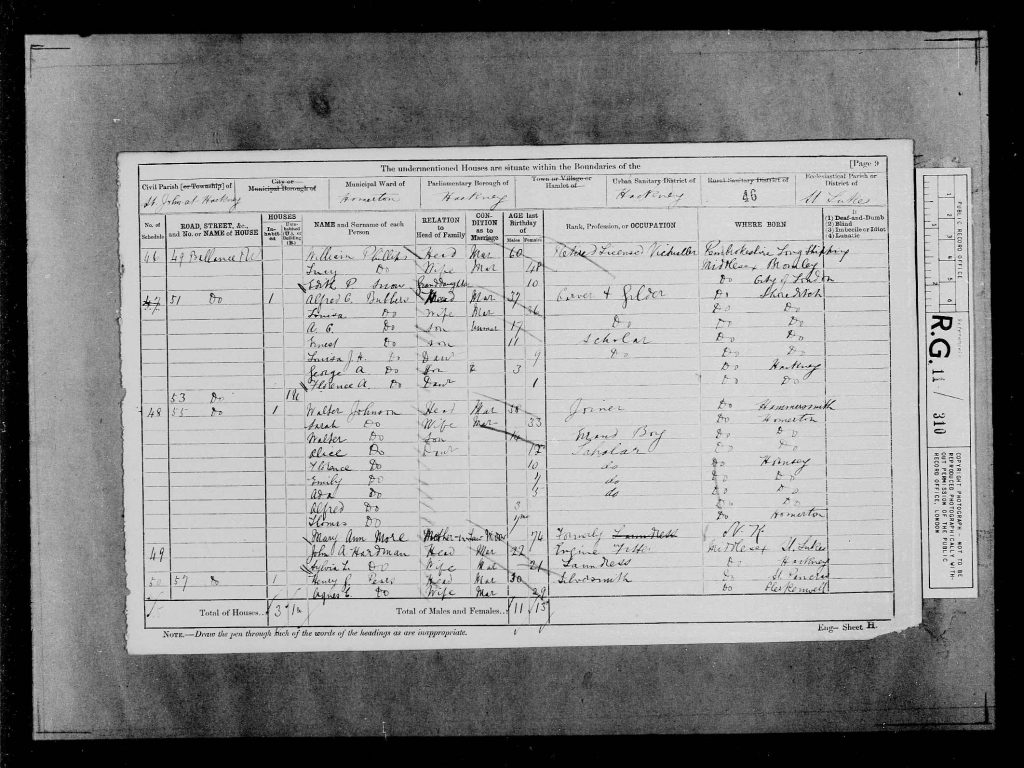 [Page 9
The undermentioned Houses are situate within the Boundaries of the
Civil Parish [or Township] of
St. John at Hackney
City or Municipal Borough of
Municipal Ward of
Homerton
Parliamentary Borough of
Hackney
Town or Village or Hamlet of
Urban Sanitary District of
Hackney
Rural Sanitary District of
46
Ecclesiastical Parish or District of
St Lukes
No. of Schedule
ROAD, STREET, &c., and No. or NAME of HOUSE
HOUSES
Inhabited
Uninhabited (U.), or Building (B.)
NAME and Surname of each Person
RELATION to Head of Family
CONDITION as to Marriage
AGE last Birthday of
Males Females
Rank, Profession, or OCCUPATION
WHERE BORN
If
(1) Deaf-and-Dumb
(2) Blind
(3) Imbecile or Idiot
(4) Lunatic
46 49 William Phillips Head Mar 60 Retired Licensed Victualler Pembrokeshire
Lucy Do Wife Mar 48 Middlesex Bromley
Edith P. Snow Granddaughter 10 Do City of London
47 51 Do 1 Alfred C. Butler Head Mar 37 Carver & Gilder Do Shoreditch
Louisa Do Wife Mar 36 Do Do
A. C. Do Son Unmar 17 Do Do Do
Ernest Do Son 11 Scholar Do Do
Louisa J. H. Do Daur 9 Do Do Do
George A. Do Son 3 Do Hackney
Florence A. Do Daur 1 Do Do
53 Do 1U
48 55 Do 1 Walter Johnson Head Mar 38 Joiner Do Hammersmith
Sarah Do Wife Mar 33 Do Homerton
Walter Do Son 14 Errand Boy Do Do
Alice Do Daur 12 Scholar Do Do
Florence Do 10 do Do Hornsey
Emily Do 7 do Do Do
Ada Do 5 do Do Do
Alfred Do 3 Do Do
Thomas Do Do Homerton
Mary Ann More Mother-in-law 74 Formerly Laundress N. K.
49 John A Hardman Head Mar 22 Engine Fitter Middlesex St. Lukes
Sylvia L. Do Wife Mar 21 Laundress Do Hackney
50 57 Do 1 Henry Head Mar 30 Silversmith Do St Pancras
Agnes E. Do Wife Mar 29 Do Clerkenwell
Total of Houses.. 3 1u Total of Males and Females.. 11 15
NOTE.—Draw the pen through such of the words of the headings as are inappropriate.
Eng— Sheet H.
PUBLIC RECORD OFFICE
Reference:-
R.G. 11 / 310
COPYRIGHT PHOTOGRAPH - NOT TO BE REPRODUCED PHOTOGRAPHICALLY WITHOUT PERMISSION OF THE PUBLIC RECORD OFFICE, LONDON